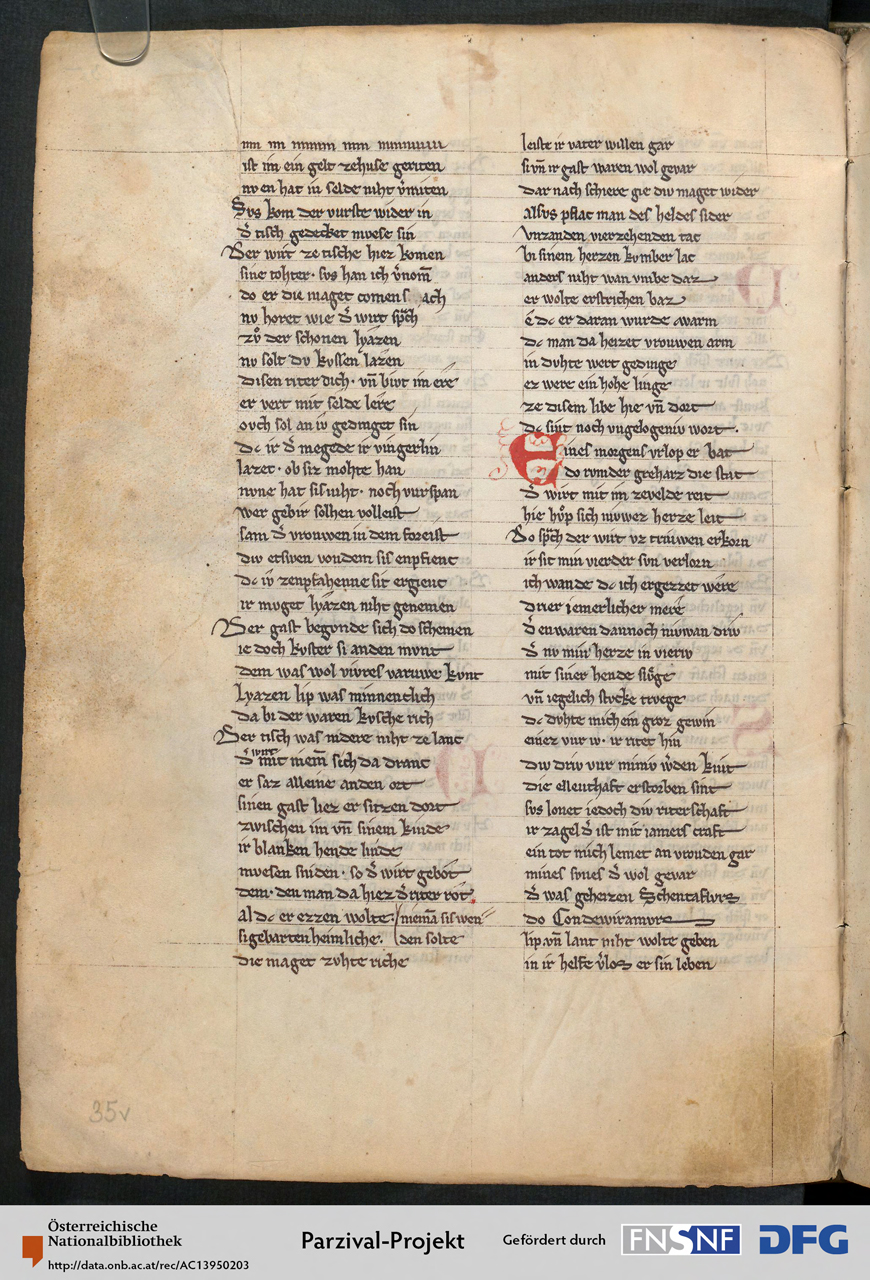 ist im ein gelt zehuse geriten
nv en hat in selde niht v̄miten
Svs kom der vurste wider in
d̄ tisch gedecket mvese sin
Der wirt ze tische hiez komen
sine tohter · svs han ich v̄nom̄
do er die maget comen s ach
nv horet wie d̄ wirt sp̄ch
zvͦ der schonen lyazen
nv solt dv kvssen lazen
disen riter dich · vn̄ bivt im ere
er vert mit selde lere
ovch sol an iv gedinget sin
dc ir d̄ megede ir vingerlin
lazet · ob siz mohte han
nvne hat sis niht · noch vurspan
wer gebir solhen volleist
sam d̄ vrouwen in dem foreist
div etswen vondem sis enpfienc
dc iv zenpfahenne sit ergienc
ir mvget lyazen niht genemen
Der gast begvnde sich do schemen
ie doch kvster si anden mvnt
dem was wol vivres varuwe kvnt
Lyazen lip was minnenclich
da bi der waren kvsche rich
Der tisch was nidere niht ze lanc
d̄ wirt mit niem̄ sich da dranc
er saz alleine anden ort
sinen gast liez er sitzen dort
zwischen im vn̄ sinem kinde
ir blanken hende linde
mvesen sniden · so d̄ wirt gebot
dem · den man da hiez d̄ riter rot
al dc er ezzen wolte · niemā sis wen
si gebarten heimliche · den solte
die maget zvhte riche
leiste ir vater willen gar
si vn̄ ir gast waren wol gevar
dar nach schiere gie div maget wider
alsvs pflac man des heldes sider
Vnzanden vierzehenden tac
bi sinem herzen kvmber lac
anders niht wan vmbe daz
er wolte erstrichen baz
e dc er daran wurde warm
dc man da heizet vrouwen arm
in dvhte wert gedinge
ez were ein hohe linge
ze disem libe hie vn̄ dort
dc sint noch vngelogeniv wort ·
Eines morgens vrlop er bat
do rvmder greharz die stat
d̄ wirt mit im zevelde reit
hie hvͦp sich niwez herze leit
Do sp̄ch der wirt vz trúwen erkorn
ir sit min vierder svn verlorn
ich wande dc ich ergezzet were
drier iemerlicher mere
d̄ en waren dannoch niwan driv
d̄ nv min herze in vieriv
mit siner hende slvͦge
vn̄ iegelich stvcke trvege
dc dvhte mich ein groz gewin
einez vur iv · ir ritet hin
div driv vur miniv w̄den kint
die ellenthaft erstorben sint
svs lonet iedoch div riterschaft
ir zagel d̄ ist mit iamers craft
ein tot mich lemet an vrouden gar
mines svnes d̄ wol gevar
d̄ was geheizen Schentaflvrs
do Condewiramvrs
lip vn̄ lant niht wolte geben
in ir helfe v̄los er sin leben
35v
Österreichische
Nationalbibliothek
http://data.onb.ac.at/rec/AC13950203
Parzival-Projekt
Gefördert durch
FNSNF
DFG